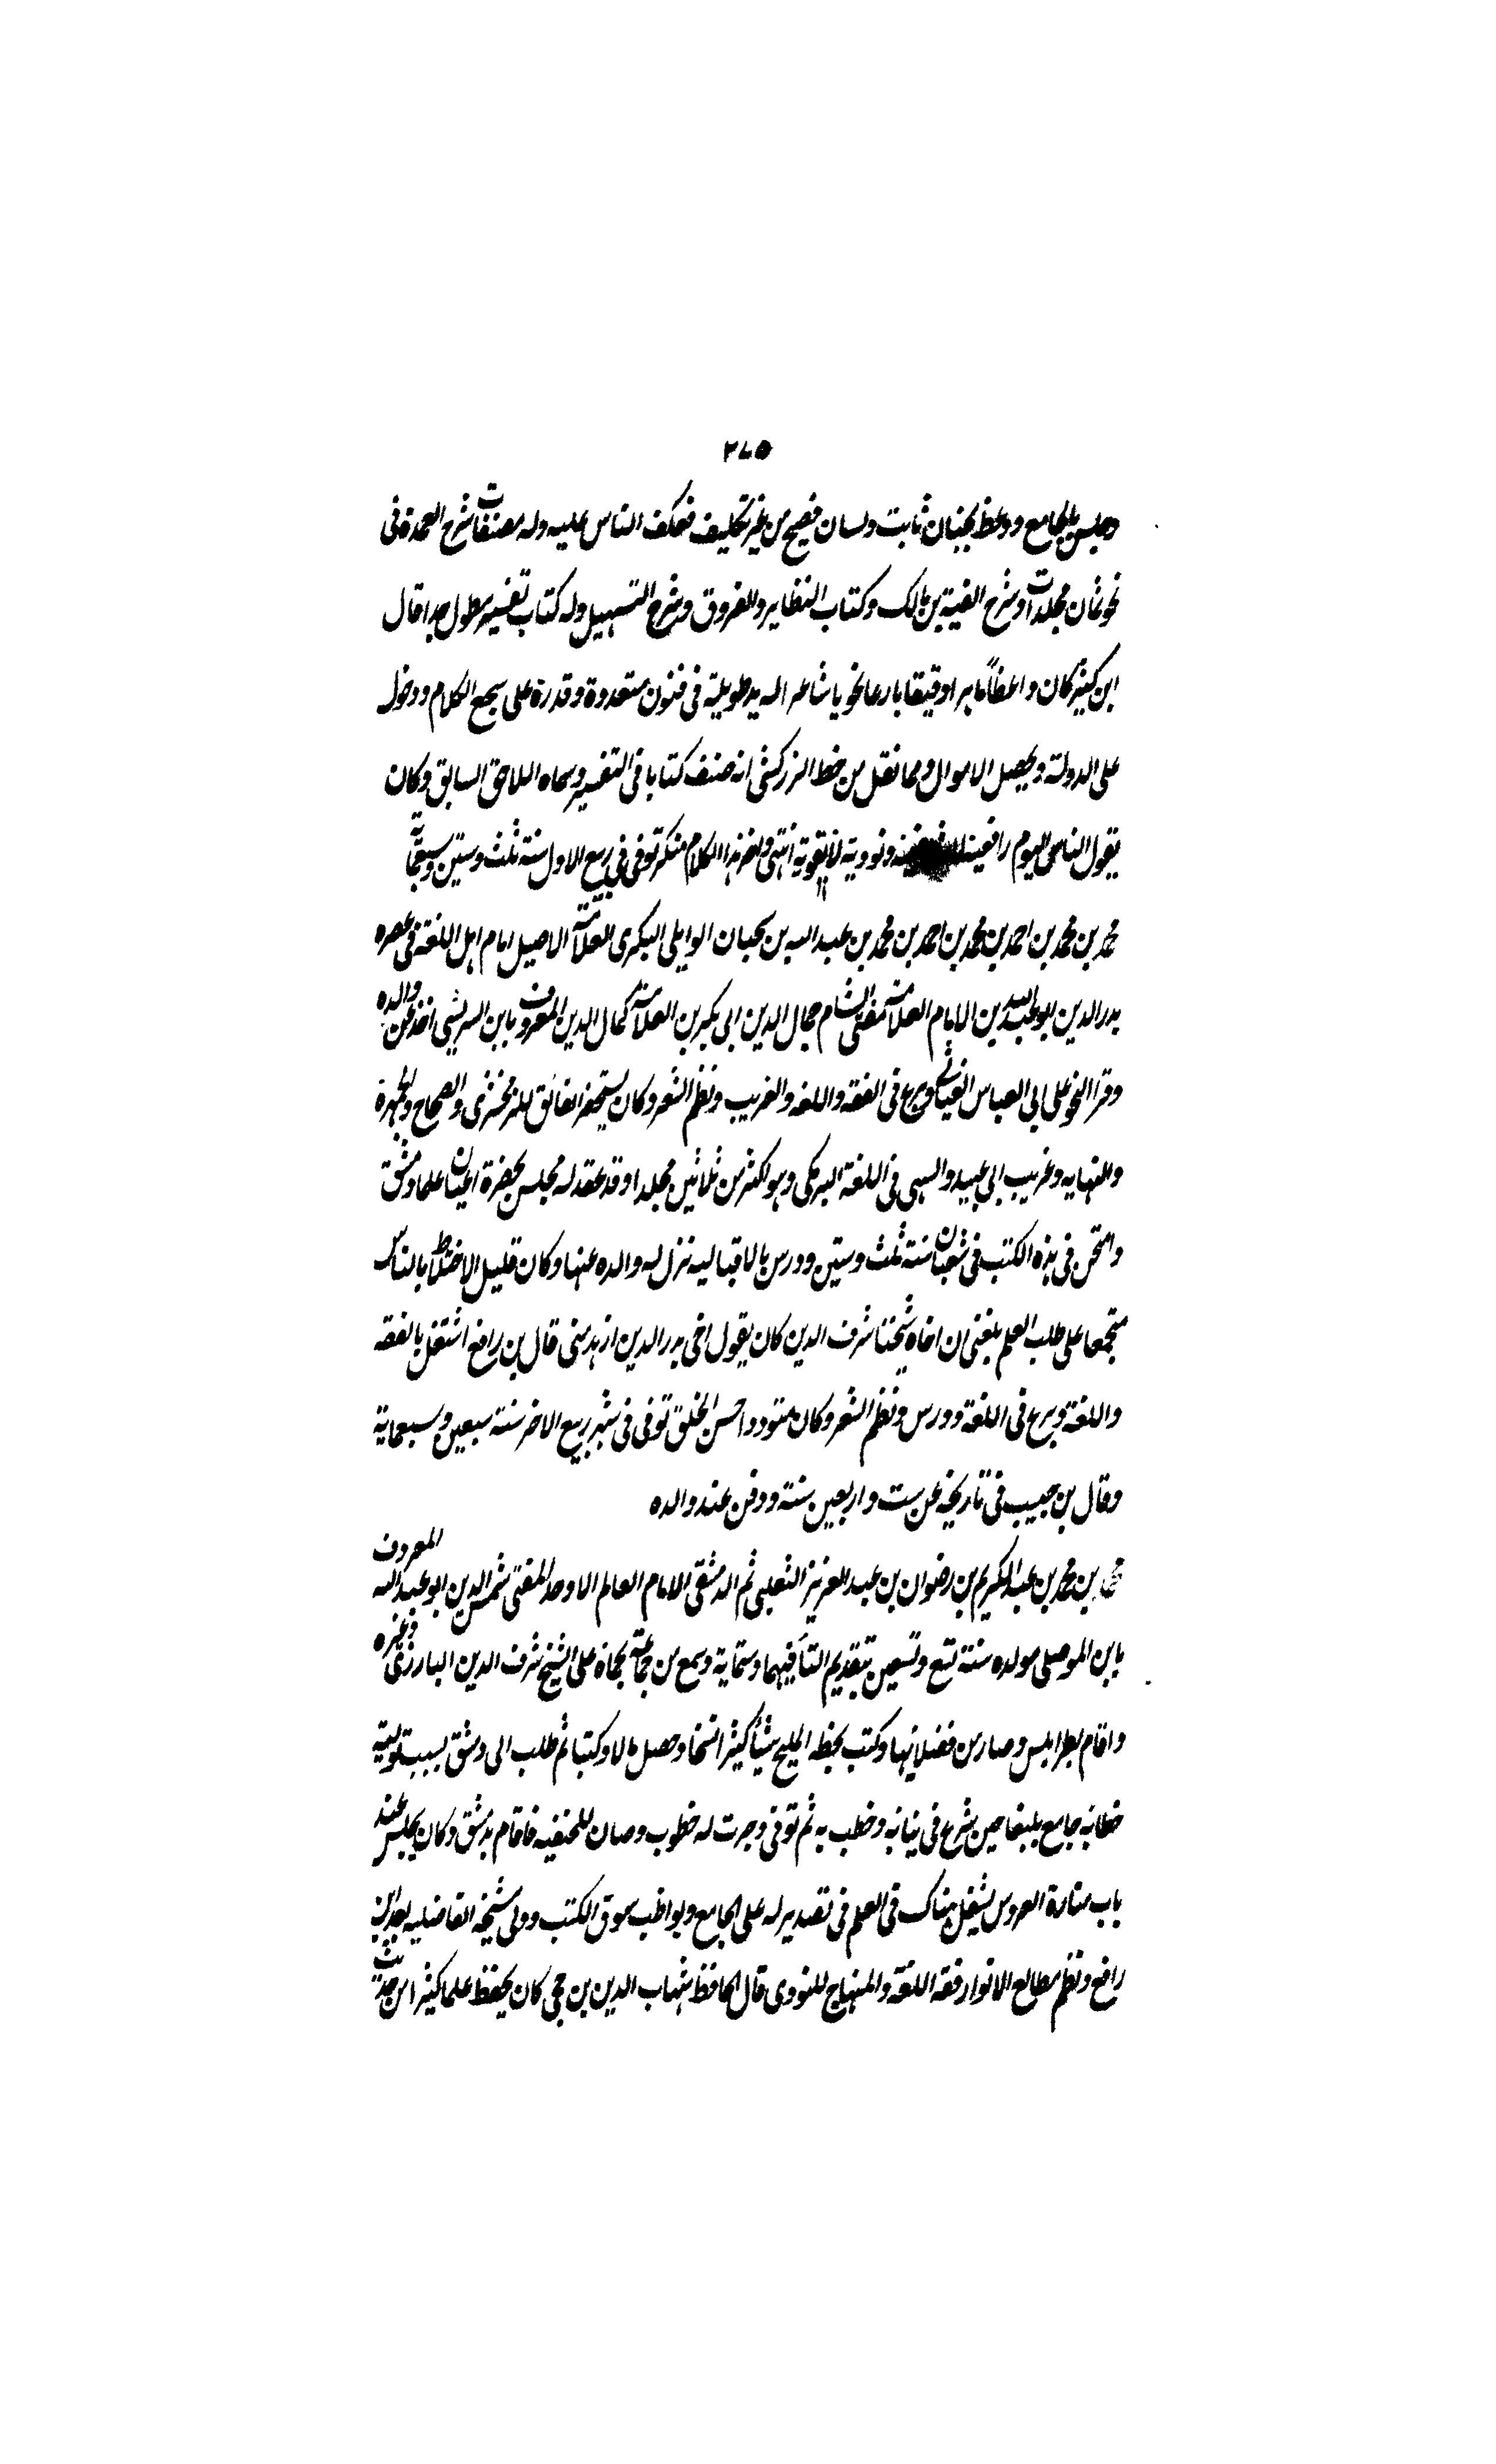 ٢٧٥
وجلس بالجامع ووعظ بجنان ثابت ولسان فصيح من غير تكليف فعكف الناس عليه وله مصنفات شرح العمدة فى
نحو ثمان مجلدات وشرح الفية بن مالك وكتاب النظاير والفروق وشرح التسهيل وله كتاب تفسير مطول جدا قال
ابن كثير كان واعظاً ماهرا وفقيها بارعا نحويا شاعرا له يد طويلة فى فنون متعددة وقدرة على سجع الكلام ودخل
على الدولة وتحصل الاموال ومما نقل من خط الزركشى انه صنف كتابا فى التفسير وسماه اللاحق السابق وكان
يقول الناس اليوم رافعية ونووية لا تقوية انتهى واخر هذا الكلام منكر توفى فى ربيع الاول سنة ثلث وستين وسبعماية
محمد بن محمد بن احمد بن محمد بن احمد بن محمد بن عبد الله بن سحبان الوايلى البكرى العلامة الاصيل امام اهل اللغة فى عصره
بدر الدين ابو عبد الله بن الامام العلامة مفتى الشام جمال الدين ابى بكر بن العلامة كمال الدين المعروف بابن الشريشى اخذ عن والده
وقرا النحو على ابى العباس العنابى وبرع فى الفقه واللغة والغريب ونظم الشعر وكان يستحضر الفائق للزمخشرى والصحاح والجمهرة
والنهايه وغريب ابى عبيد والمنتهى فى اللغة البرمكى وهو اكثر من ثلاثين مجلدا وقد عقد له مجلس بحضرة اعيان علما دمشق
وامتحن فى هذه الكتب فى شعبان سنة ثلث وستين ودرس بالاقباليه نزل له والده عنها وكان قليل الاختلاط بالناس
متجمعا على طلب العلم بلغنى ان اخاه شيخنا شرف الدين كان يقول اخى بدر الدين ازهد منى قال بن رافع اشتغل بالفقه
واللغة وبرع فى اللغة ودرس ونظم الشعر وكان متوددا حسن الخلق توفى فى شهر ربيع الاخر سنة سبعين وسبعماية
وقال بن حبيب فى تاريخه عن ست واربعين سنة ودفن عند والده
محمد بن محمد بن عبد الكريم بن رضوان بن عبد العزيز الثعلبى ثم الدمشقى الامام العالم الاوحد المفتى شمس الدين ابو عبد الله المعروف
بابن الموصلى مولده سنة تسع وتسعين بتقديم التأفيهما وستماية وسمع من جماعة بحماة على الشيخ شرف الدين البارزى وغيره
واقام بطرابلس وصار من فضلائها وكتب بخطه المليح شيأ كثيرا نسخا وحصل مالا وكتبا ثم طلب الى دمشق بسبب توليته
خطابة جامع يلبغا حين شرع فى بنائه وخطب به ثم توفى وجرت له خطوب وصان للحنفيه فاقام بدمشق وكان يجلس عند
باب منارة العروس يشغل هناك فى العلم فى تصدير له على الجامع ويواظب سوق الكتب وولى مشيخة الفاضليه بعد ابن
رافع ونظم مطالع الانوار وفقه اللغة والمنهاج للنووى قال الحافظ شهاب الدين بن حجى كان يحفظ علما كثيرا من حديث